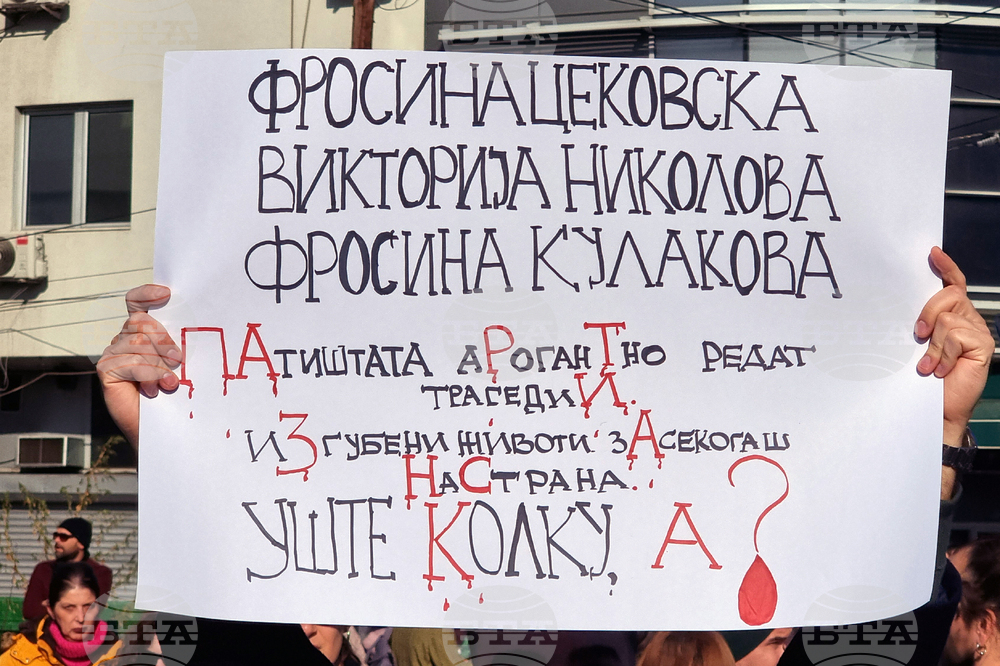 ФРОСИНА ЦЕКОВСКА
ВИКТОРИЈА НИКОЛОВА
ФРОСИНА КУЛАКОВА
ПАТИШТАТА АРОГАНТНО РЕДАТ
ТРАГЕДИИ.
ИЗГУБЕНИ ЖИВОТИ ЗАСЕКОГАШ
НАСТРАНА.
УШТЕ КОЛКУ, А?
БТА
БТА
БТА
БТА
БТА
БТА